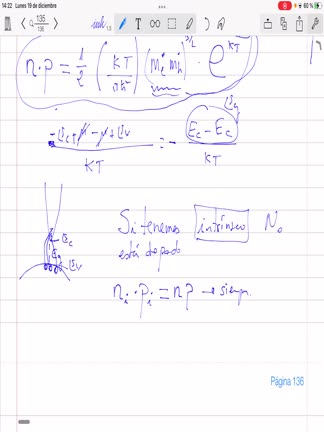 14:22 Lunes 19 de diciembre
60 %
135
136
n · p = 1/2 (KT/πħ²) (m*e m*h)^3/2 · e^KT
-Ec+μ-μ+Ev / KT = - Ec - Ec / KT
Eg
Ec
Eg
Ev
Si tenemos intrínseco No
está dopado
ni · pi = np → siempre
Página 136